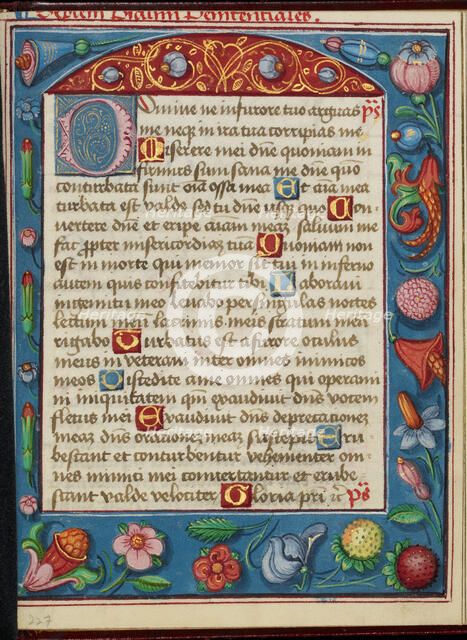 Septem Psalmi Penitentiales.
Domine ne in furore tuo arguas ps
me neqz in ira tua corripias me
Miserere mei dñe quoniam in
firmus sum sana me dñe quo
conturbata sunt oīa ossa mea Et aīa mea
turbata est valde sed tu dñe usqz quo Con
vertere dñe et eripe aīam meaz salvum me
fac propter misericordiaz tuā Quoniam non
est in morte qui memor sit tui in inferno
autem quis confitebitur tibi Laboravi
in gemitu meo lavabo per singulas noctes
lectum meū lacrimis meis stratum meū
rigabo Turbatus est a furore oculus
meus inveteravi inter omnes inimicos
meos Discedite a me omnes qui operami
ni iniquitatem qm̄ exaudivit dñs vocem
fletus mei Exaudivit dñs deprecationez
meaz dñs orationez meaz suscepit Eru
bescant et conturbentur vehementer om
nes inimici mei convertantur et erube
scant valde velociter Gloria pri ps
227
Heritage
Heritage
Heritage
Heritage